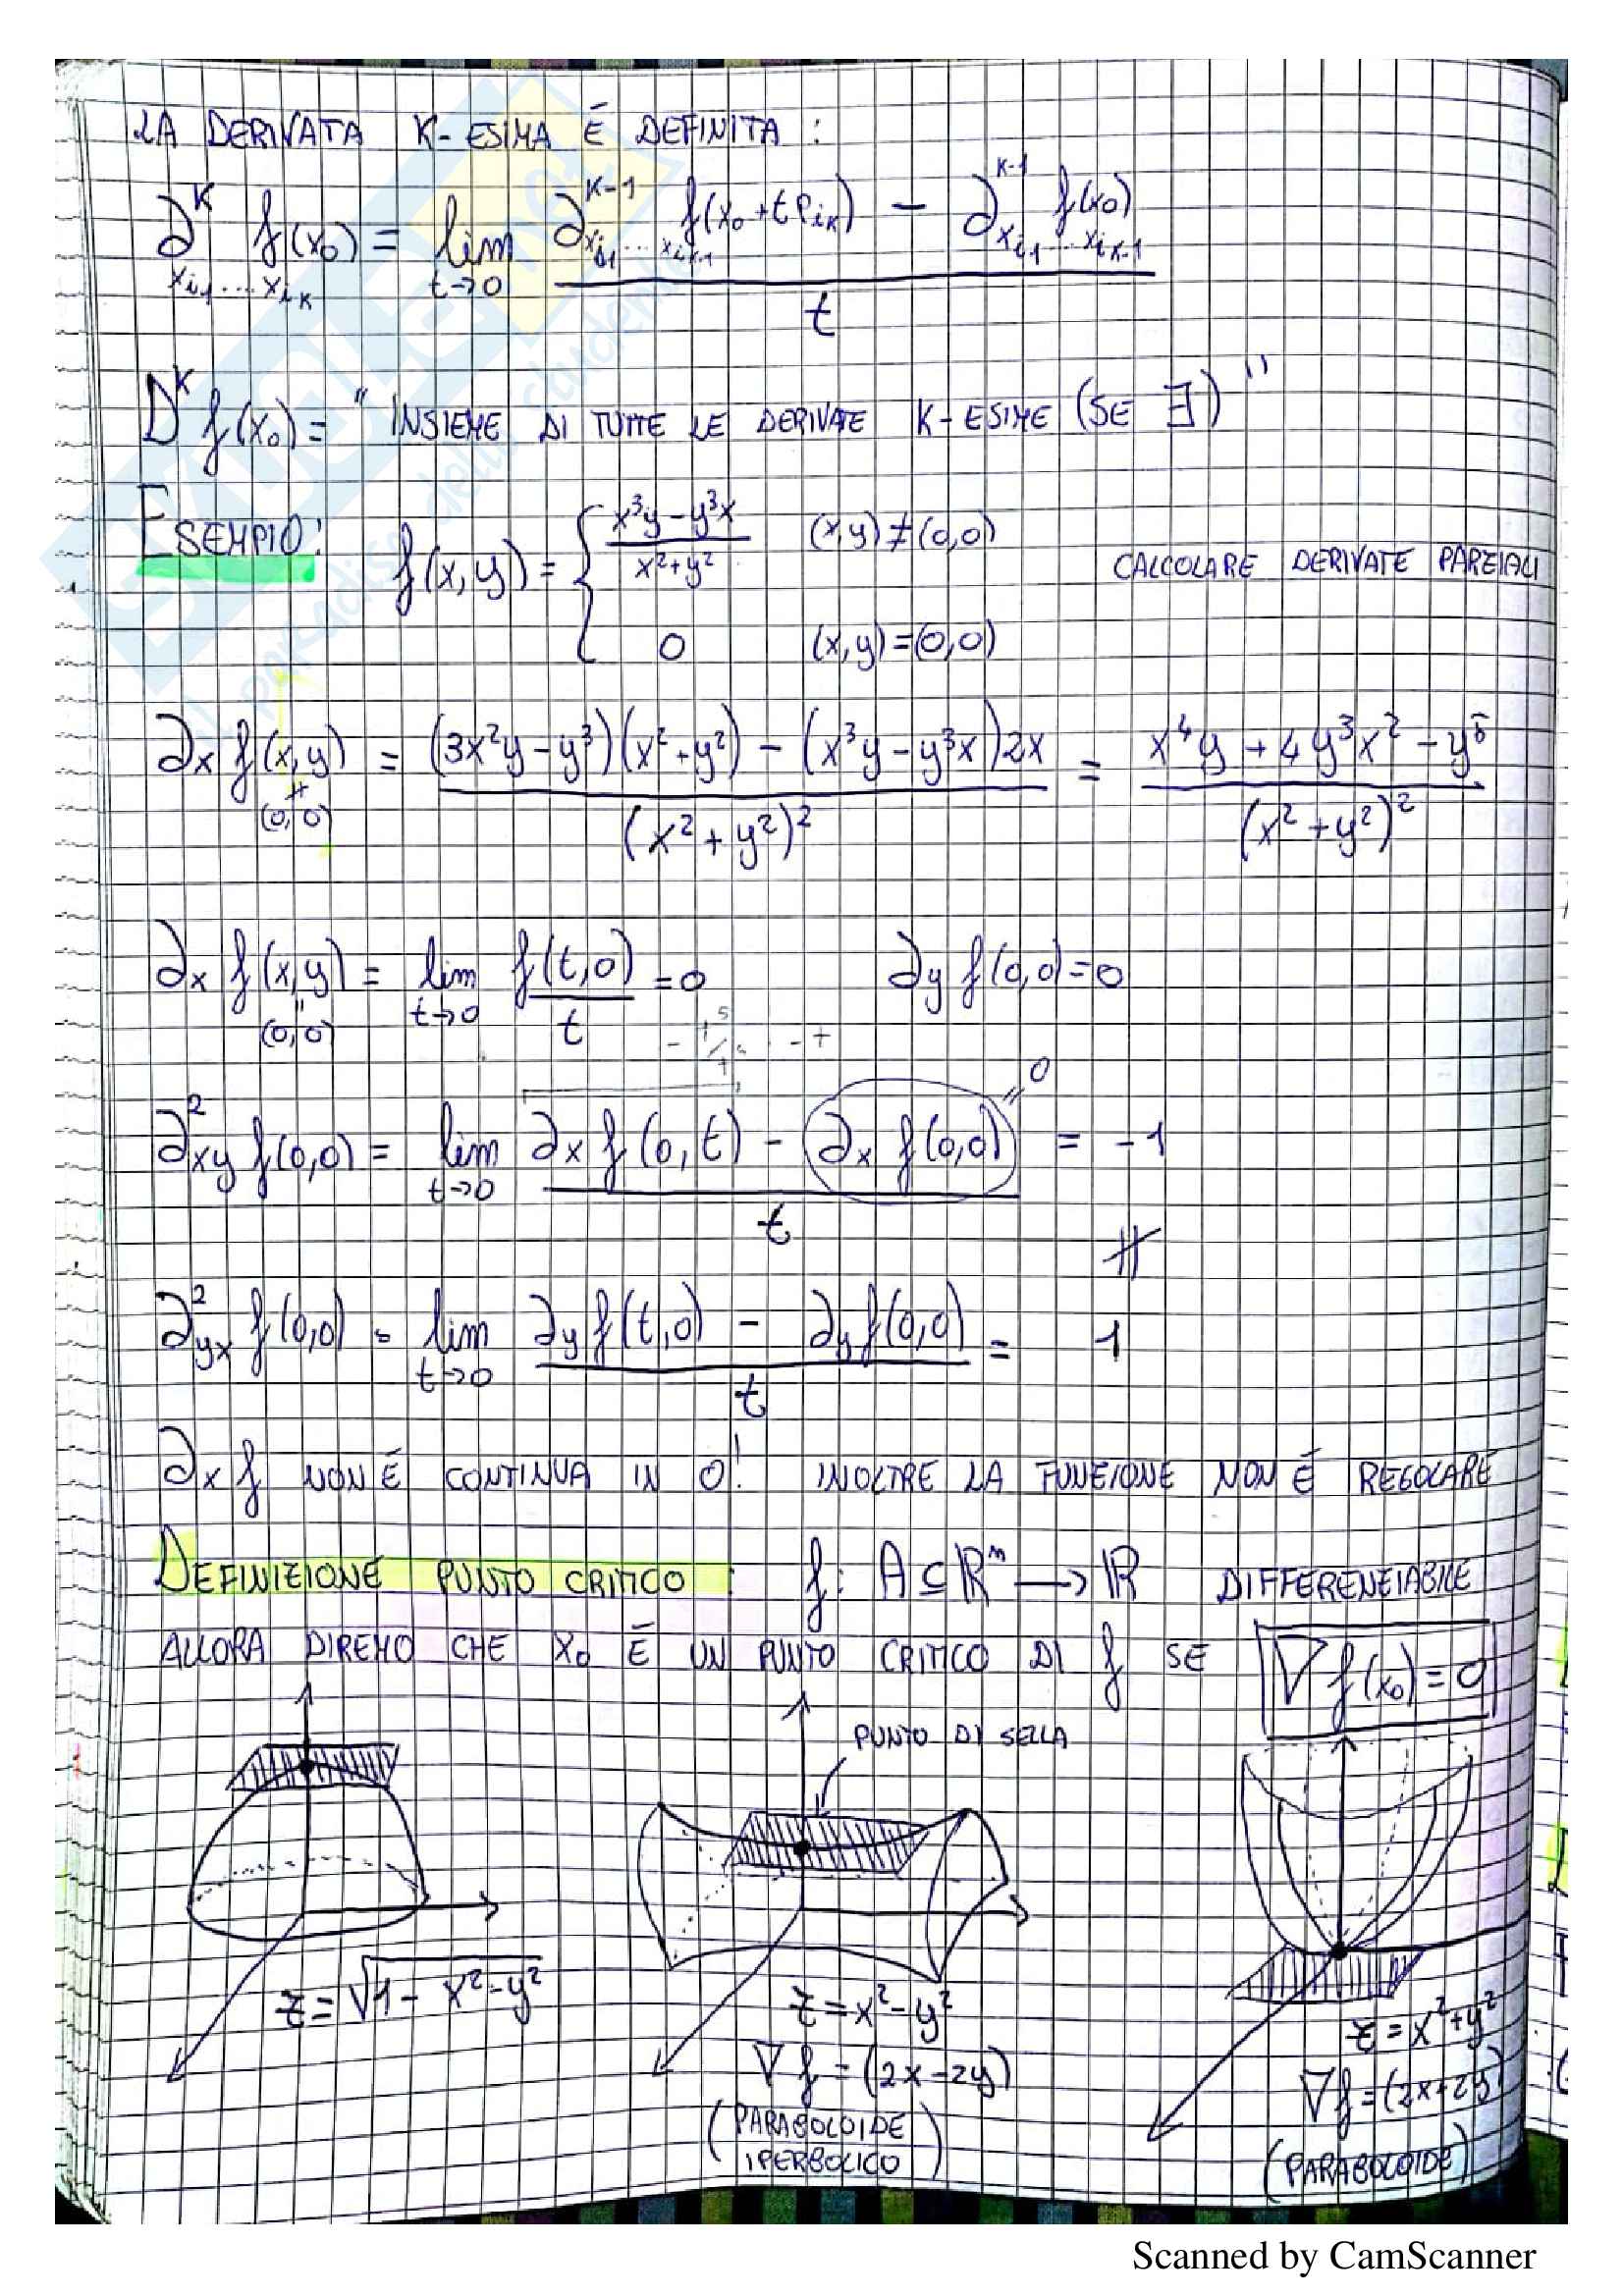 LA DERIVATA K-ESIMA È DEFINITA :
∂^K_{x_{i1}...x_{iK}} f(x₀) = lim_{t→0} (∂^{K-1}_{x_{i1}...x_{iK-1}} f(x₀+te_{iK}) − ∂^{K-1}_{x_{i1}...x_{iK-1}} f(x₀)) / t
D^K f(x₀) = " INSIEME DI TUTTE LE DERIVATE K-ESIME (SE ∃) "
ESEMPIO: f(x,y) = { (x³y − y³x)/(x²+y²) (x,y) ≠ (0,0)
CALCOLARE DERIVATE PARZIALI
0 (x,y) = (0,0)
∂x f(x,y) = ((3x²y − y³)(x²+y²) − (x³y − y³x)2x) / (x²+y²)² = (x⁴y + 4y³x² − y⁵) / (x²+y²)²
≠
(0,0)
∂x f(x,y) = lim_{t→0} f(t,0)/t = 0 ∂y f(0,0) = 0
=
(0,0)
∂²xy f(0,0) = lim_{t→0} (∂x f(0,t) − ∂x f(0,0)) / t = −1
= 0
≠
∂²yx f(0,0) = lim_{t→0} (∂y f(t,0) − ∂y f(0,0)) / t = 1
∂x f NON È CONTINUA IN 0! INOLTRE LA FUNZIONE NON È REGOLARE
DEFINIZIONE PUNTO CRITICO : f: A ⊆ ℝⁿ → ℝ DIFFERENZIABILE
ALLORA DIREMO CHE x₀ È UN PUNTO CRITICO DI f SE ∇f(x₀) = 0
PUNTO DI SELLA
z = √(1 − x² − y²)
z = x² − y²
∇f = (2x − 2y)
(PARABOLOIDE
IPERBOLICO)
z = x² + y²
∇f = (2x+2y)
(PARABOLOIDE)
Scanned by CamScanner